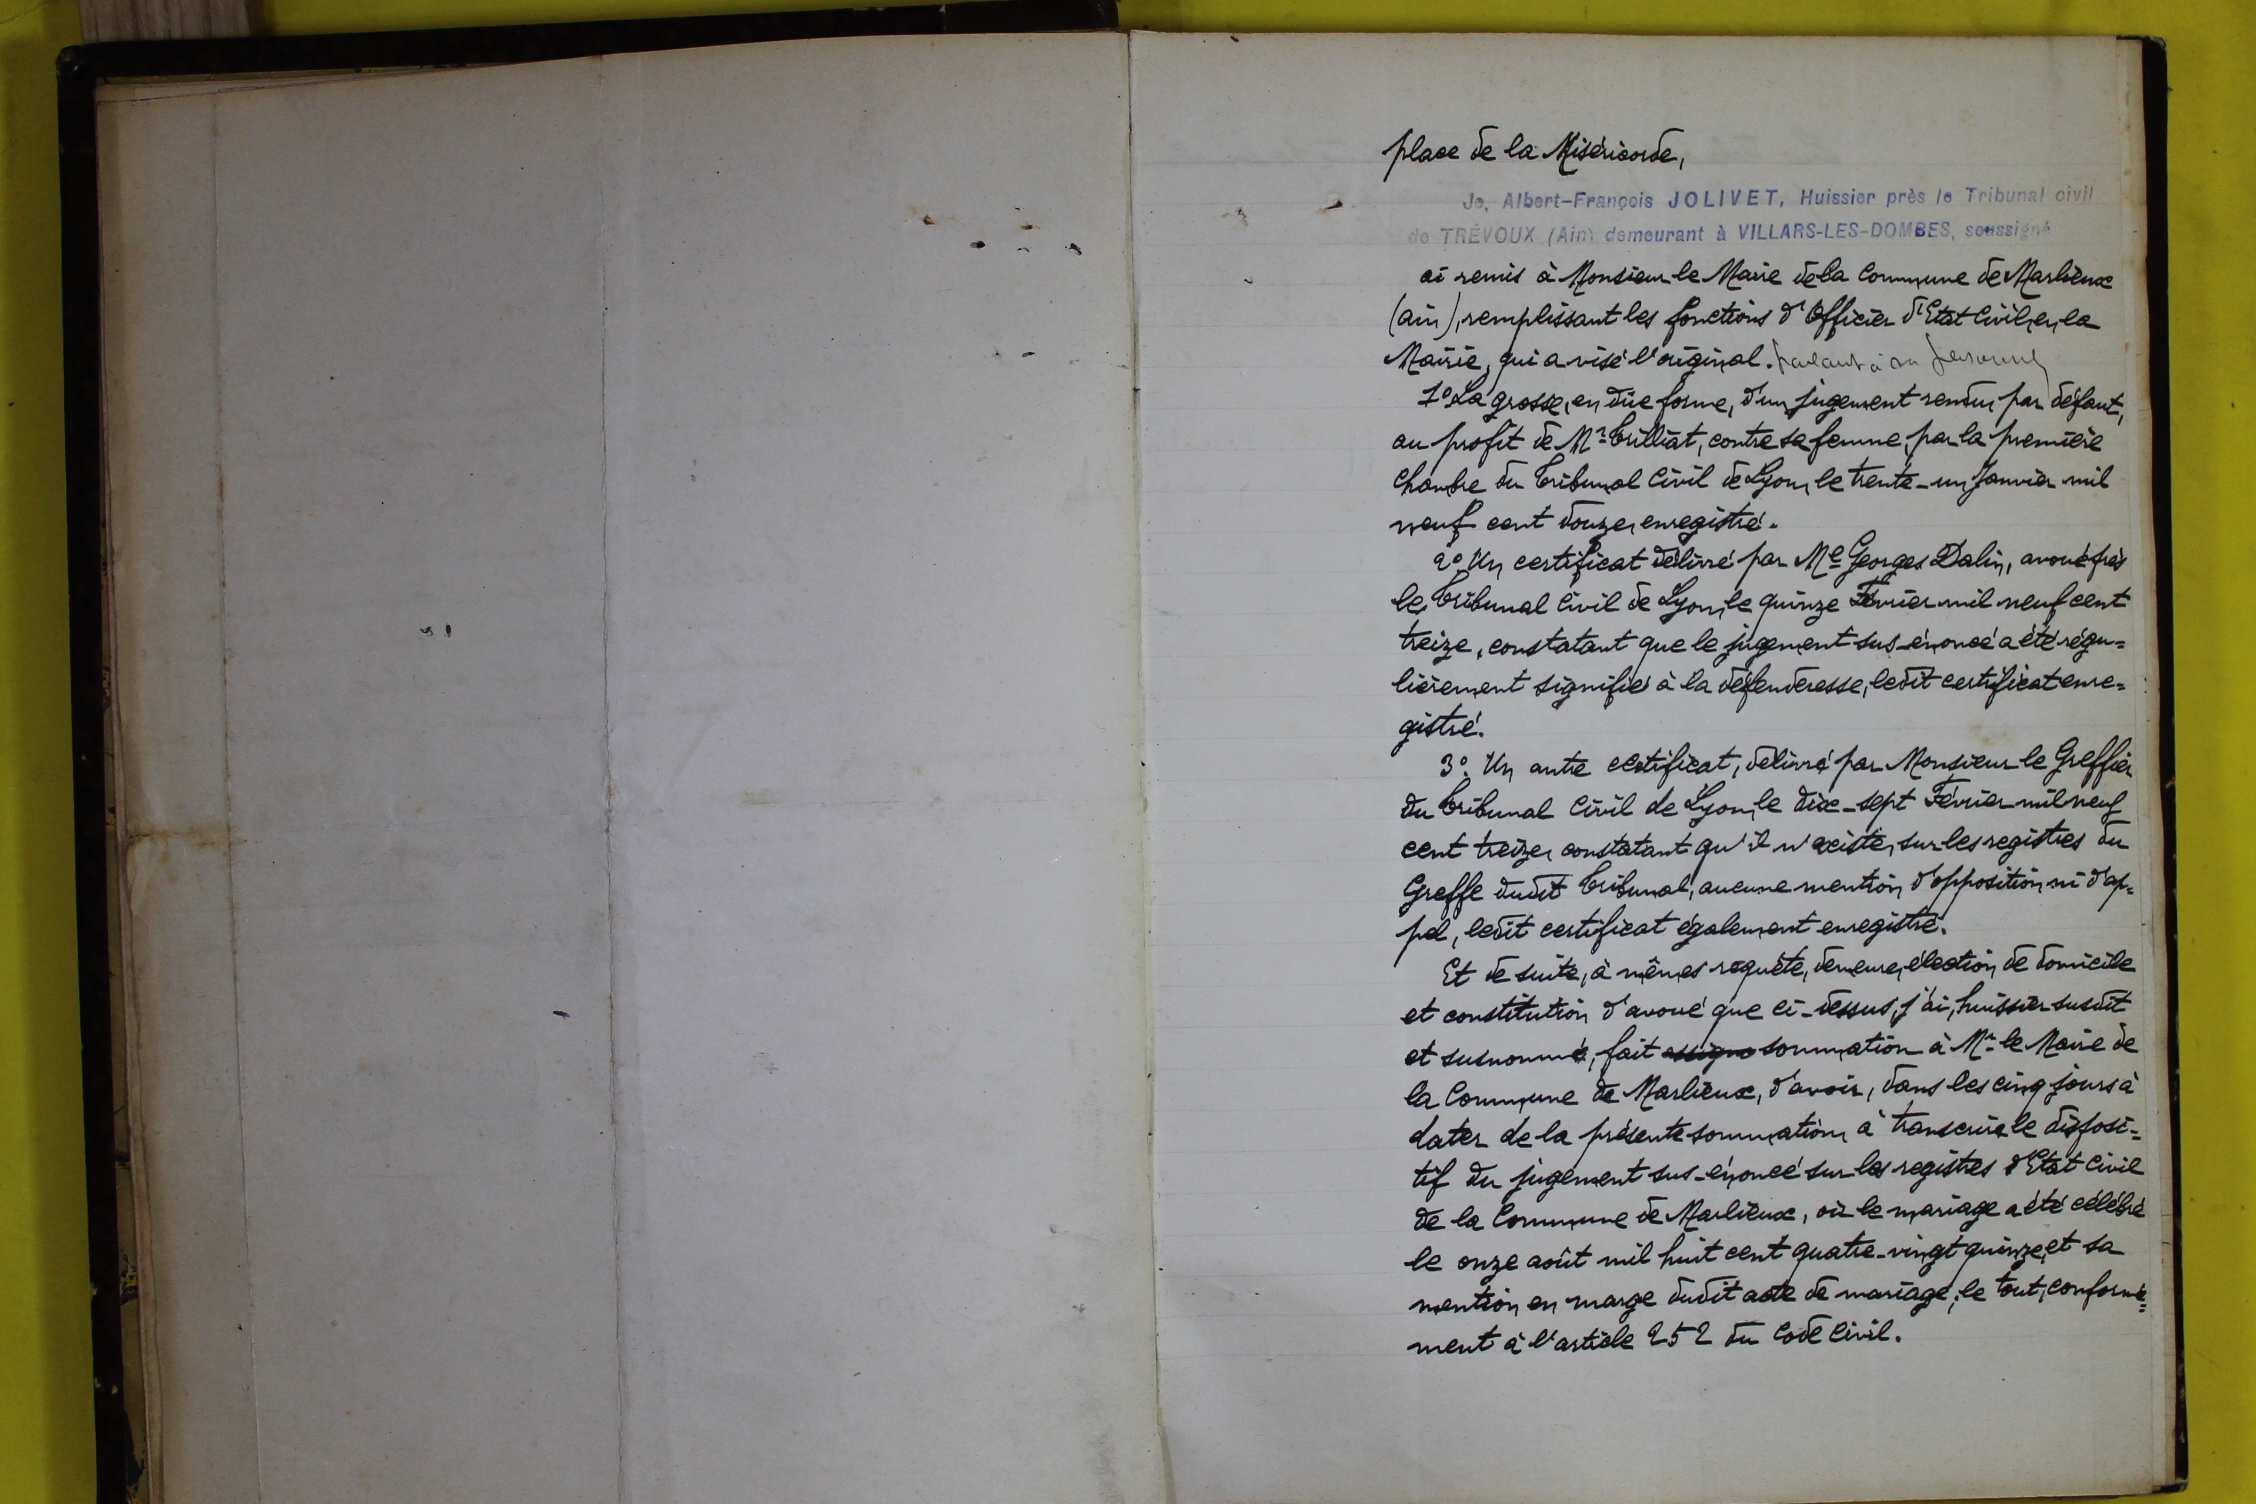 place de la Miséricorde,
Je, Albert-François JOLIVET, Huissier près le Tribunal civil
de TRÉVOUX (Ain) demeurant à VILLARS-LES-DOMBES, soussigné
ai remis à Monsieur le Maire de la Commune de Marlieux
(ain), remplissant les fonctions d'Officier d'Etat Civil, en la
Mairie, qui a visé l'original. parlant à sa personne
1º La grosse, en dûe forme, d'un jugement rendu, par défaut,
au profit de Mr Trilliat, contre sa femme, par la première
Chambre du Tribunal Civil de Lyon, le trente-un Janvier mil
neuf cent douze, enregistré.
2º. Un certificat délivré par Me Georges Dalin, avoué près
le Tribunal Civil de Lyon, le quinze Février mil neuf cent
treize, constatant que le jugement sus-énoncé a été régu=
lièrement signifié à la défenderesse, ledit certificat enre=
gistré.
3º. Un autre certificat, délivré par Monsieur le Greffier
du Tribunal Civil de Lyon, le dix-sept Février mil neuf
cent treize, constatant qu'il n'existe, sur les registres du
Greffe dudit Tribunal, aucune mention d'opposition, ni d'ap=
pel, ledit certificat également enregistré.
Et de suite, à mêmes requête, demeure, élection de domicile
et constitution d'avoué que ci-dessus, j'ai, huissier susdit
et susnommé, fait assigna sommation à Mr le Maire de
la Commune de Marlieux, d'avoir, dans les cinq jours à
dater de la présente sommation, à transcrire le disposi=
tif du jugement sus-énoncé sur les registres d'Etat Civil
de la Commune de Marlieux, où le mariage a été célébré
le onze août mil huit cent quatre-vingt quinze, et sa
mention en marge dudit acte de mariage; le tout, conformé=
ment à l'article 252 du Code Civil.